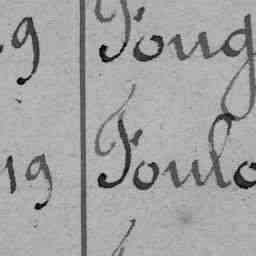 9 Foug
19 Foulo